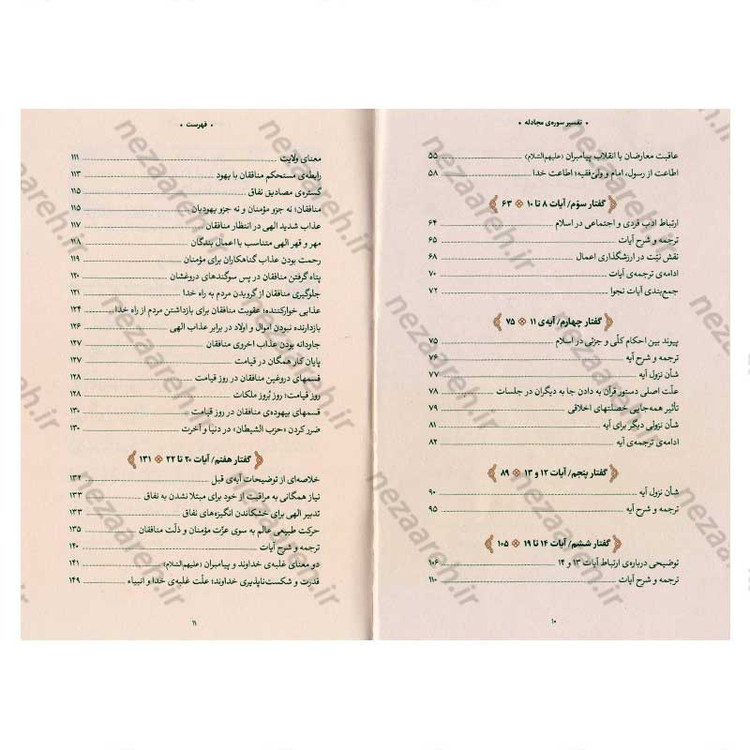 • تفسیر سوره‌ی مجادله •
عاقبت معارضان با انقلاب پیامبران (علیهم‌السّلام) ۵۵
اطاعت از رسول، امام و ولیّ‌فقیه؛ اطاعت خدا ۵۸
گفتار سوّم/ آیات ۸ تا ۱۰ ۶۳
ارتباط ادب فردی و اجتماعی در اسلام ۶۴
ترجمه و شرح آیات ۶۵
نقش نیّت در ارزشگذاری اعمال ۶۸
ادامه‌ی ترجمه‌ی آیات ۷۰
جمع‌بندی آیات نجوا ۷۲
گفتار چهارم/ آیه‌ی ۱۱ ۷۵
پیوند بین احکام کلّی و جزئی در اسلام ۷۵
ترجمه و شرح آیه ۷۶
شأن نزول آیه ۷۷
علّت اصلی دستور قرآن به دادن جا به دیگران در جلسات ۷۸
تأثیر همه‌جایی خصلتهای اخلاقی ۷۹
شأن نزولی دیگر برای آیه ۸۱
ادامه‌ی ترجمه‌ی آیه ۸۲
گفتار پنجم/ آیات ۱۲ و ۱۳ ۸۹
شأن نزول آیه ۹۰
ترجمه و شرح آیه ۹۵
گفتار ششم/ آیات ۱۴ تا ۱۹ ۱۰۵
توضیحی درباره‌ی ارتباط آیات ۱۳ و ۱۴ ۱۰۶
ترجمه و شرح آیات ۱۱۰
۱۰
• فهرست •
معنای ولایت ۱۱۱
رابطه‌ی مستحکم منافقان با یهود ۱۱۳
گستره‌ی مصادیق نفاق ۱۱۵
منافقان؛ نه جزو مؤمنان و نه جزو یهودیان ۱۱۵
عذاب شدید الهی در انتظار منافقان ۱۱۷
مهر و قهر الهی متناسب با اعمال بندگان ۱۱۸
رحمت بودن عذاب گناهکاران برای مؤمنان ۱۱۹
پناه گرفتن منافقان در پس سوگندهای دروغشان ۱۲۰
جلوگیری منافقان از گرویدن مردم به راه خدا ۱۲۱
عذابی خوارکننده؛ عقوبت منافقان برای بازداشتن مردم از راه خدا ۱۲۴
بازدارنده نبودن اموال و اولاد در برابر عذاب الهی ۱۲۶
جاودانه بودن عذاب اخروی منافقان ۱۲۷
پایان کار همگان در قیامت ۱۲۷
قسمهای دروغین منافقان در روز قیامت ۱۲۸
روز قیامت؛ روز بُروز ملکات ۱۲۸
قسمهای بیهوده‌ی منافقان در روز قیامت ۱۳۰
ضرر کردن «حزب الشیطان» در دنیا و آخرت ۱۳۰
گفتار هفتم/ آیات ۲۰ تا ۲۲ ۱۳۱
خلاصه‌ای از توضیحات آیه‌ی قبل ۱۳۲
نیاز همگانی به مراقبت از خود برای مبتلا نشدن به نفاق ۱۳۳
تدبیر الهی برای خشکاندن انگیزه‌های نفاق ۱۳۳
حرکت طبیعی عالم به سوی عزّت مؤمنان و ذلّت منافقان ۱۳۵
ترجمه و شرح آیات ۱۴۰
دو معنای غلبه‌ی خداوند و پیامبران (علیهم‌السّلام) ۱۴۱
قدرت و شکست‌ناپذیری خداوند؛ علّت غلبه‌ی خدا و انبیاء ۱۴۹
۱۱
nezaareh.ir